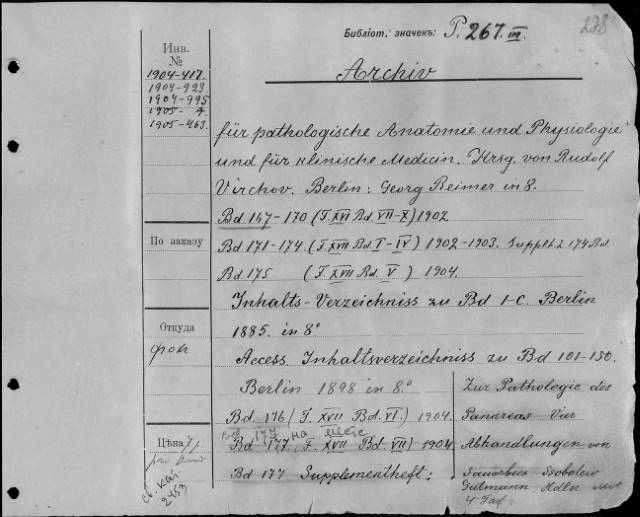 Библіот. значекъ: P. 267. III.
238
Инв.
№
1904-417.
1904-923
1904-995
1905-9
1905-463.
Archiv
für pathologische Anatomie und Physiologie
und für klinische Medicin. Hrsg. von Rudolf
Virchov. Berlin: Georg Reimer in 8.
Bd. 167-170 (F. XVI Bd. VII-X) 1902
По заказу
Bd. 171-174. (F. XVII Bd. I-IV) 1902-1903. Supplt. z. 174 Bd.
Bd. 175 (F. XVII Bd. V) 1904.
Inhalts-Verzeichniss zu Bd 1-C. Berlin
1885. in 8°
Откуда
Access. Inhaltsverzeichniss zu Bd 101-150.
Berlin 1898 in 8°
Bd. 176 (F. XVII Bd. VI.) 1904.
Bd. 177 на
Bd. 177, F. XVII Bd. VII) 1904
Bd 177 Supplementheft:
Zur Pathologie des
Pankreas Vier
Abhandlungen von
Sauerbeck Ssobolew
Gutmann, Adler Mit
4 Taf.
Цѣна
св. кат.
2453